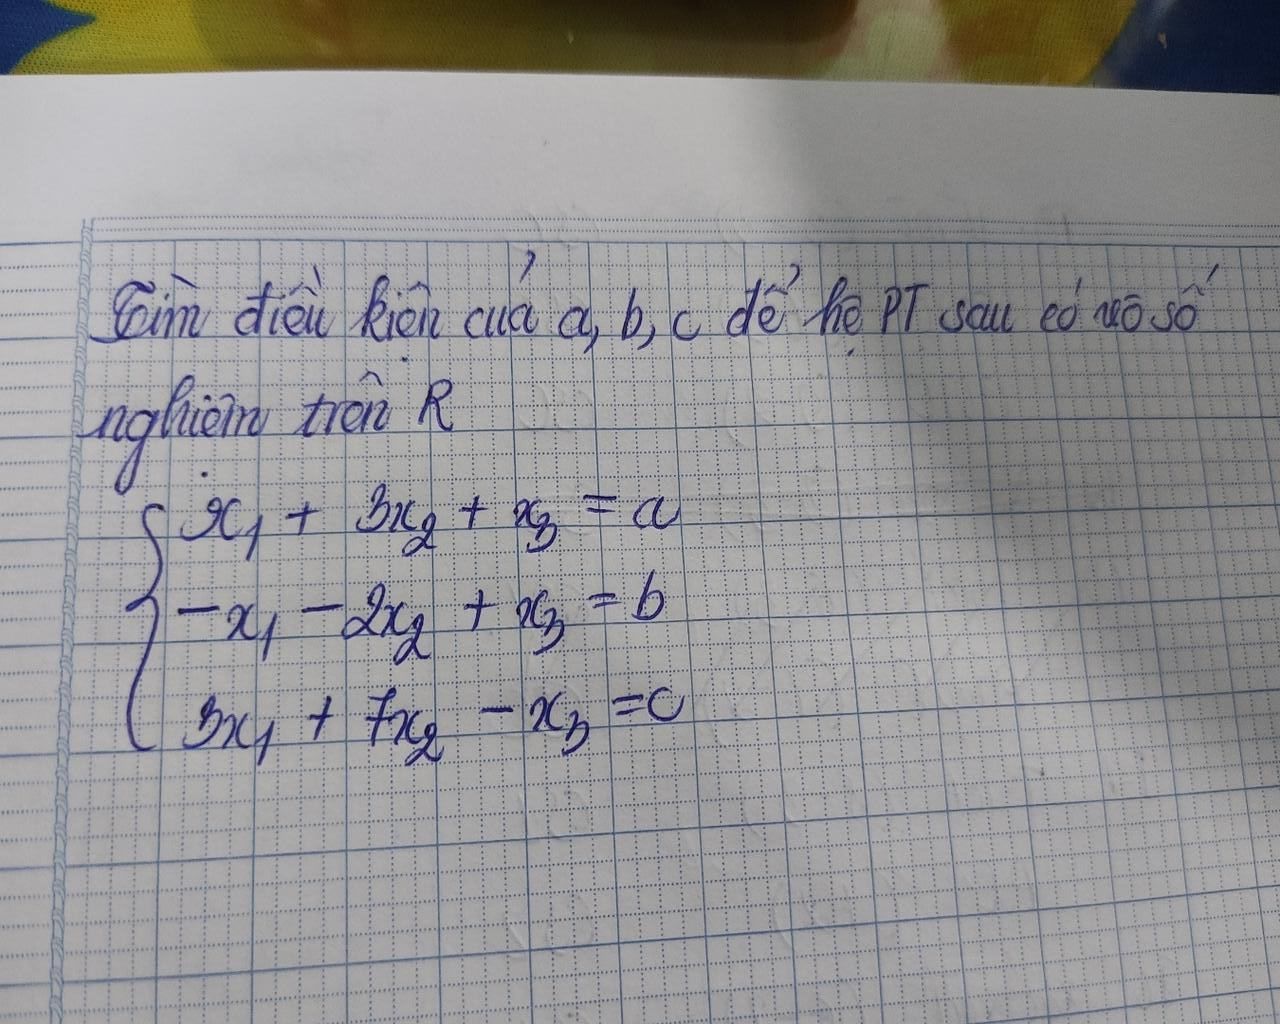 Tìm điều kiện của a, b, c để hệ PT sau có vô số
nghiệm trên R
x₁ + 3x₂ + x₃ = a
-x₁ - 2x₂ + x₃ = b
3x₁ + 7x₂ - x₃ = c